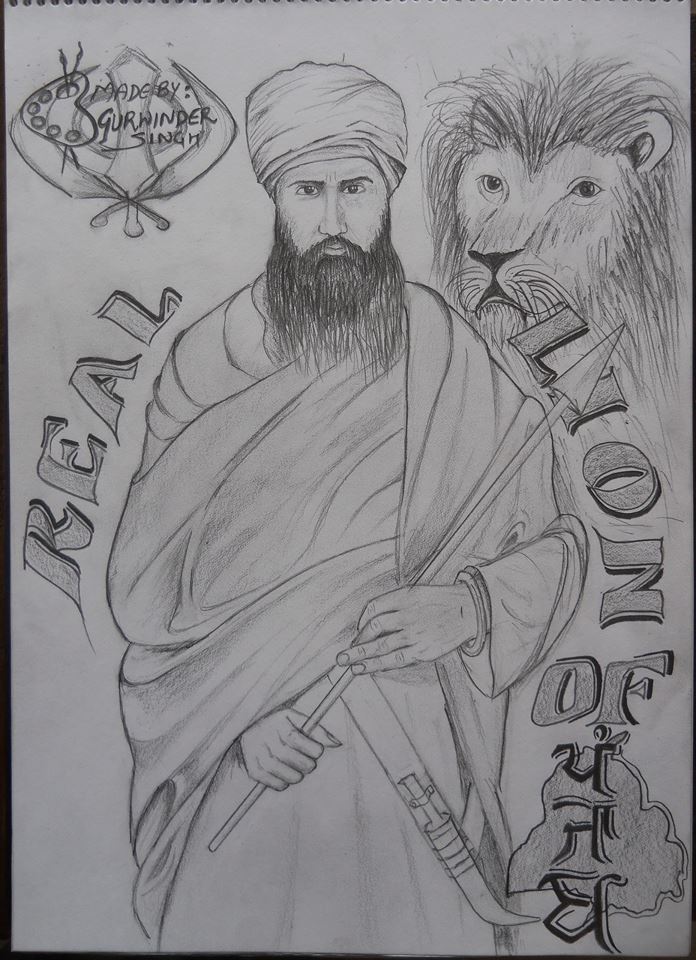 MADE BY:
GURWINDER
SINGH
REAL
LION
OF
ਪੰਜਾਬ